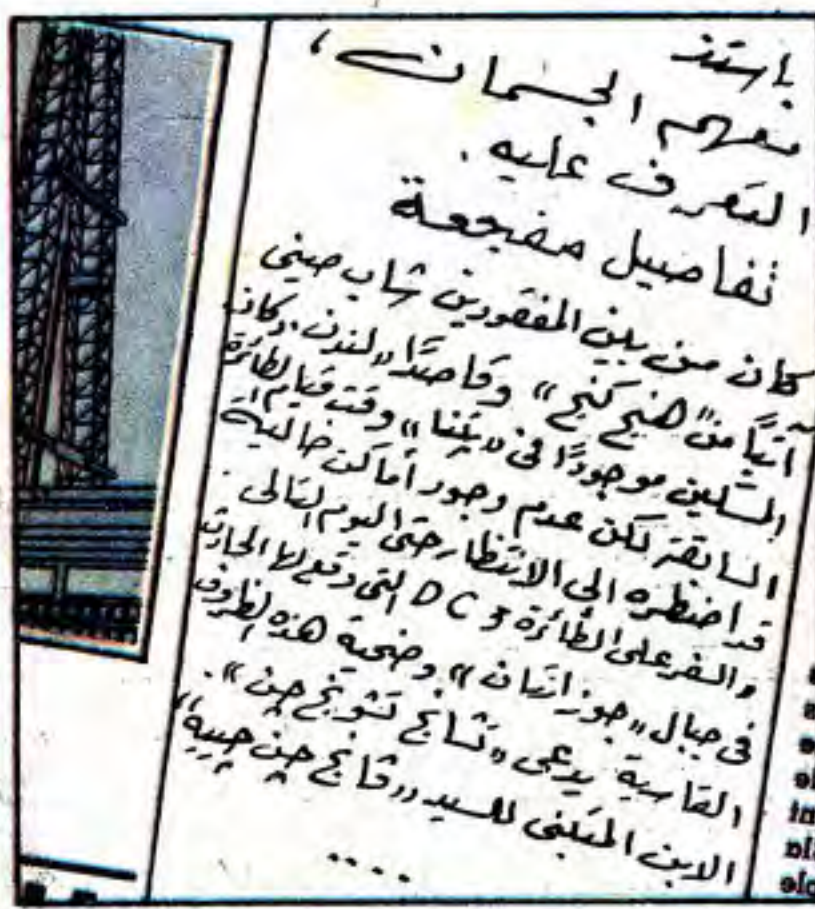 باستنذ
معهم الجسمان،
التعرف عليه.
تفاصيل مفجعة
كان من بين المفقودين شاب صيني
آتيًا من "هنج كنج" وقاصدًا "لندن. وكان
المسكين موجودًا في "يتنا" وقت قيام الطائرة
السابقة لكن عدم وجود أماكن خالية
قد اضطره الى الانتظار حتى اليوم التالي.
والسفر على الطائرة DC 3 التي وقع لها الحادث
في جبال "جوزانتان" وضحية هذه الظروف
القاسية يدعى "تشانج تشونج چن".
الابن المتبنى للسيد "قانج چن چييه"
....
nt
ble